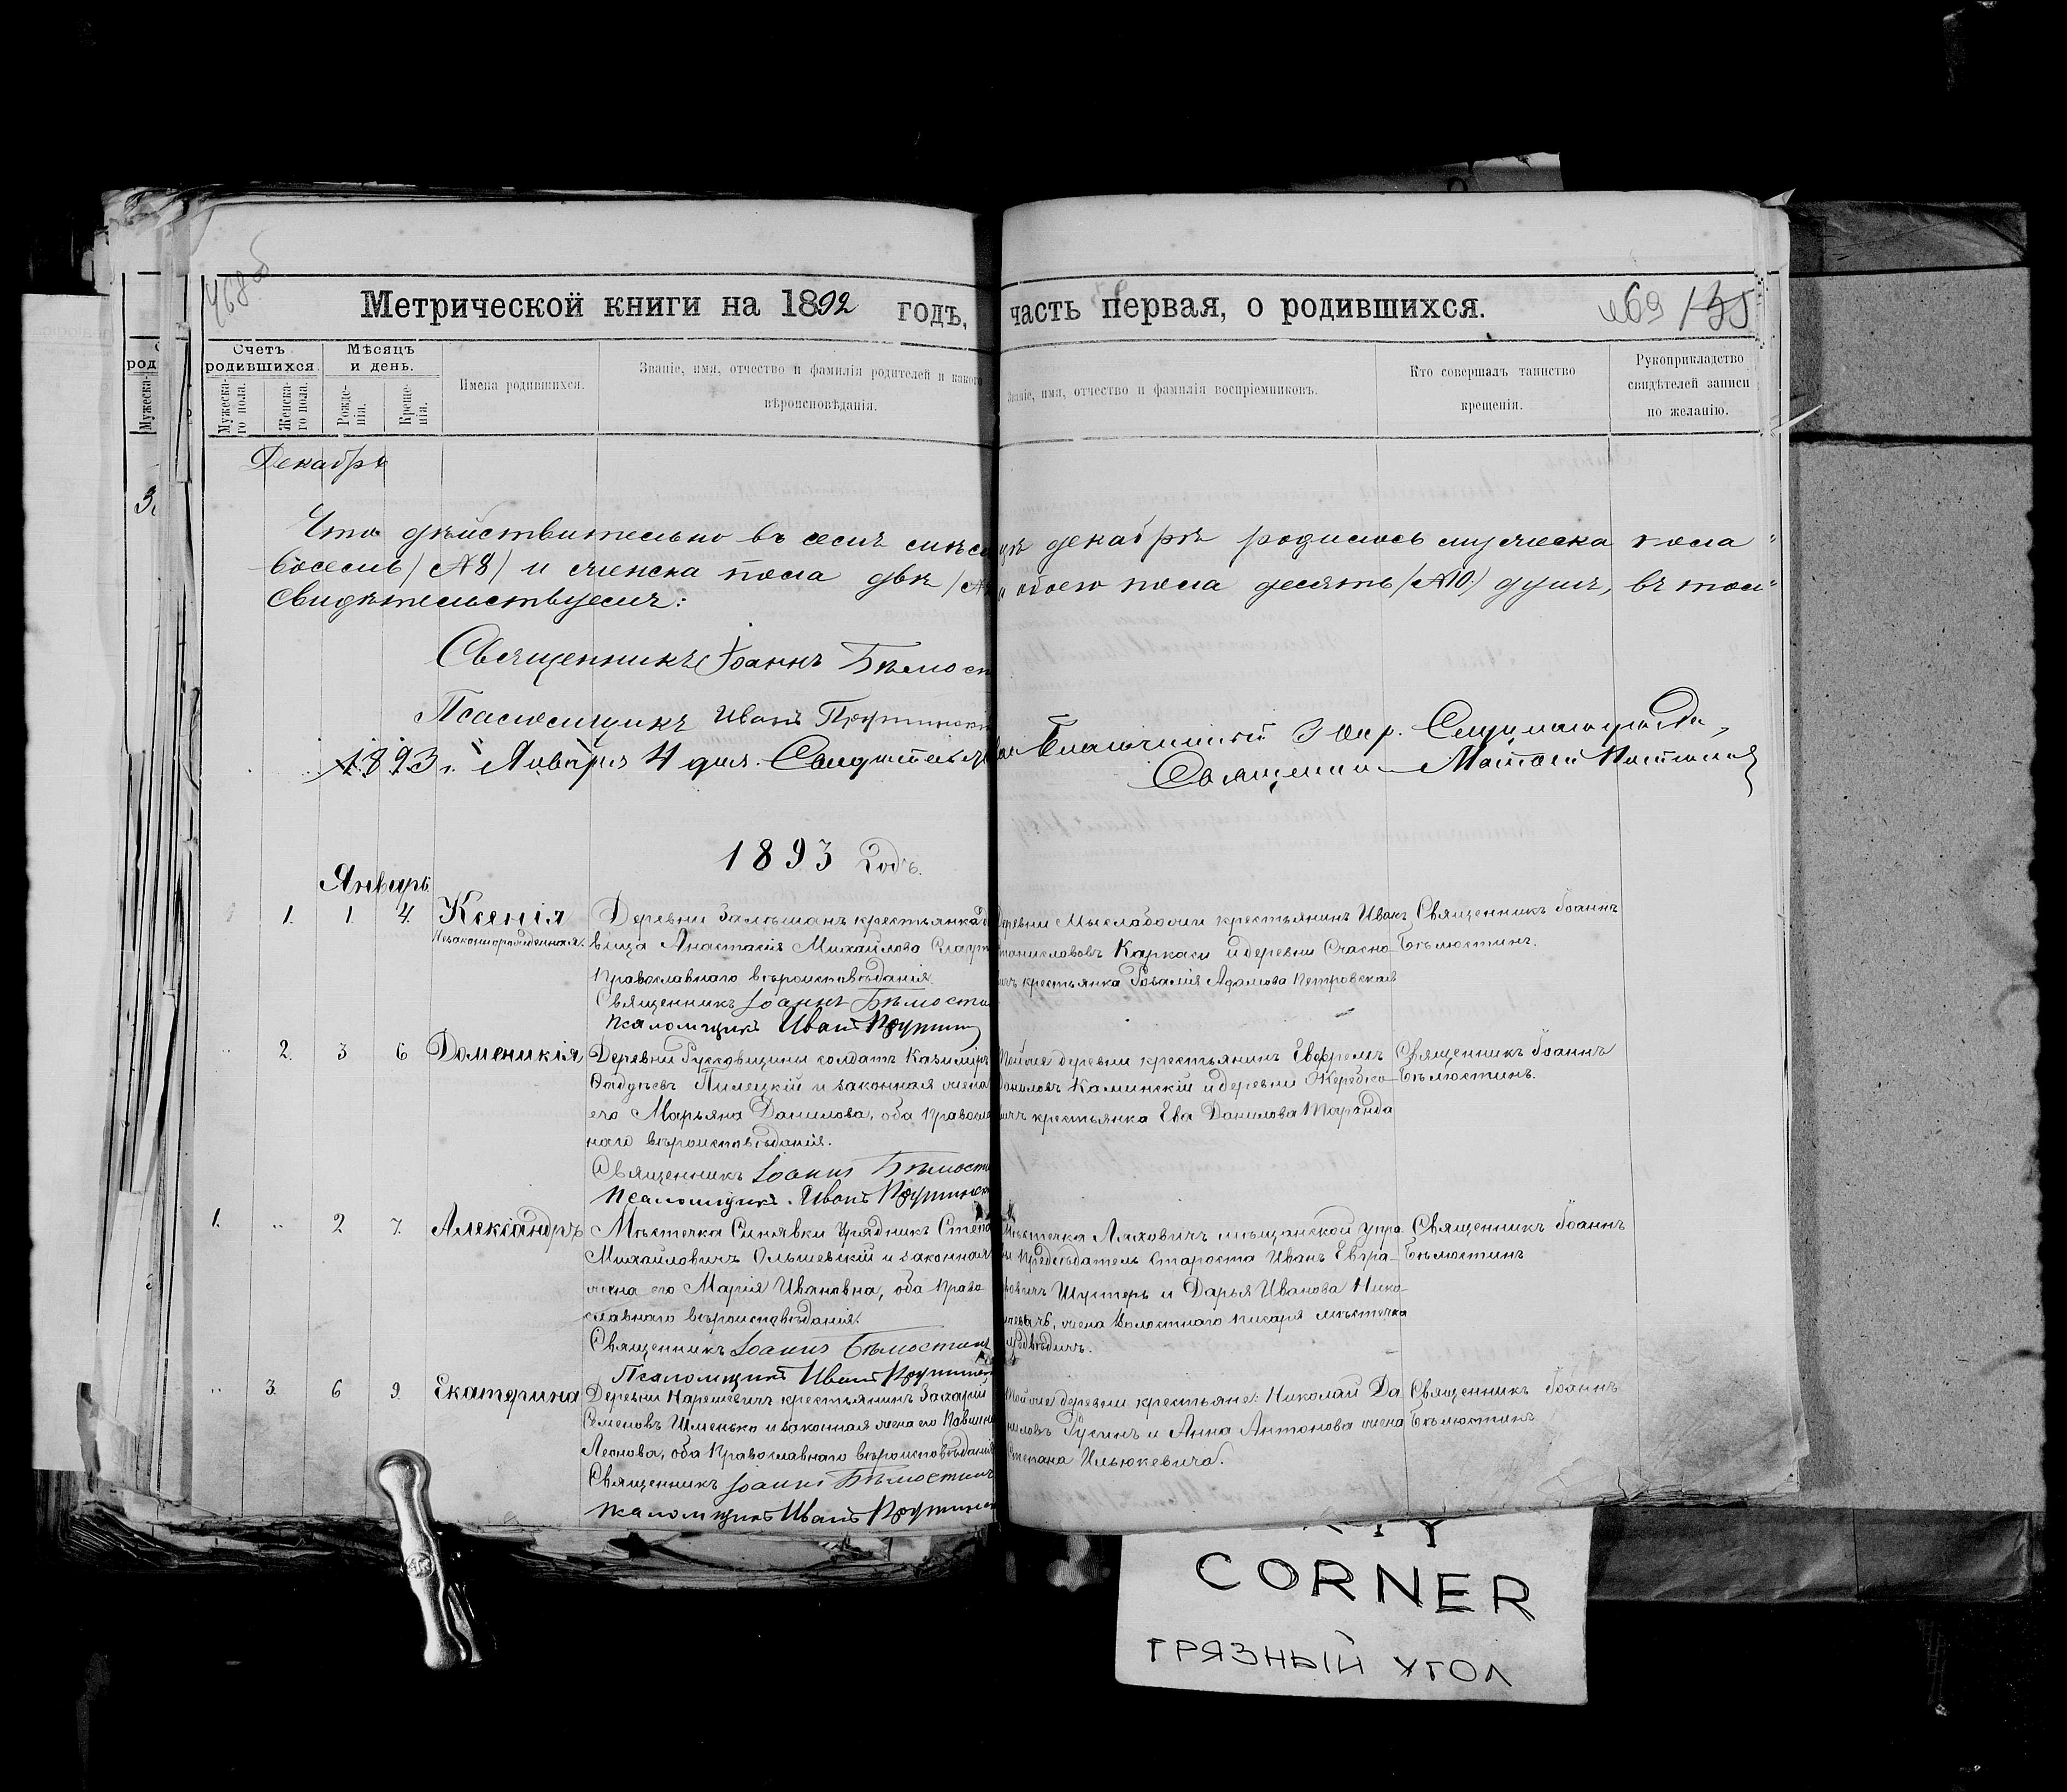 Метрической книги на 1892 годъ, часть первая, о родившихся.
469 135
Счетъ родившихся.
Мужеска-го пола.
Женска-го пола.
Мѣсяцъ и день.
Рожде-нія.
Креще-нія.
Имена родившихся.
Званіе, имя, отчество и фамилія родителей и какого
вѣроисповѣданія.
Званіе, имя, отчество и фамилія воспріемниковъ.
Кто совершалъ таинство
крещенія.
Рукоприкладство
свидѣтелей записи
по желанію.
Декабрь
Что дѣйствительно въ семъ мѣсяцѣ декабрѣ родилось мужеска пола
восемь /№8/ и женска пола двѣ /№ а обоего пола десять /№10/ душъ, въ томъ
свидѣтельствуемъ:
Священникъ Іоаннъ Бѣлюст
Псаломщикъ Иванъ
1893 г. Января 4 дня. Благочинный 3 окр. Слуцкаго уѣзда,
Священник
1893 Годъ.
Январь.
1. 1. 4. Ксенія
Незаконнорожденная.
Деревни крестьянка дѣ
вица Анастасія Михайлова
Православнаго вѣроисповѣданія
Священникъ Іоаннъ Бѣлюсти
Псаломщикъ Иванъ
Деревни Мыслобожи крестьянинъ Иванъ
Станиславовъ Каркаси и деревни
крестьянка Розалія Адамова Петровская
Священникъ Іоаннъ
Бѣлюстинъ.
2. 3 6 Доменикія
Деревни Русовщины солдатъ Казиміръ
Ѳаддѣевъ Пилецкій и законная жена
его Марьяна Данилова, оба православ
наго вѣроисповѣданія.
Священникъ Іоаннъ Бѣлюсти
Псаломщикъ Иванъ
Тойже деревни крестьянинъ Евфремъ
Даниловъ Каминскій и деревни Жеребко-
вичъ крестьянка Ева Данилова
Священникъ Іоаннъ
Бѣлюстинъ.
1. 2 7. Александръ
Мѣстечка Синявки Урядникъ Степа
Михайловичъ Ольшевскій и законная
жена его Марія Ивановна, оба право
славнаго вѣроисповѣданія.
Священникъ Іоаннъ Бѣлюстинъ
Псаломщикъ Иванъ
Мѣстечка Ляховичъ мѣщанской упра
вы Предсѣдатель Староста Иванъ
Шустеръ и Дарья Иванова
жена Волостного писаря мѣстечка
Медвѣдичъ.
Священникъ Іоаннъ
Бѣлюстинъ
3. 6 9. Екатерина
Деревни Нарешевичъ крестьянинъ Захарій
Семеновъ Шменько и законная жена его
Леонова, оба Православнаго вѣроисповѣданія
Священникъ Іоаннъ Бѣлюстинъ
Псаломщикъ Иванъ
Тойже деревни крестьяне: Николай Да
ниловъ Русинъ и Анна Антонова жена
Степана Ильюкевича.
Священникъ Іоаннъ
Бѣлюстинъ
CORNER
ГРЯЗНЫЙ УГОЛ